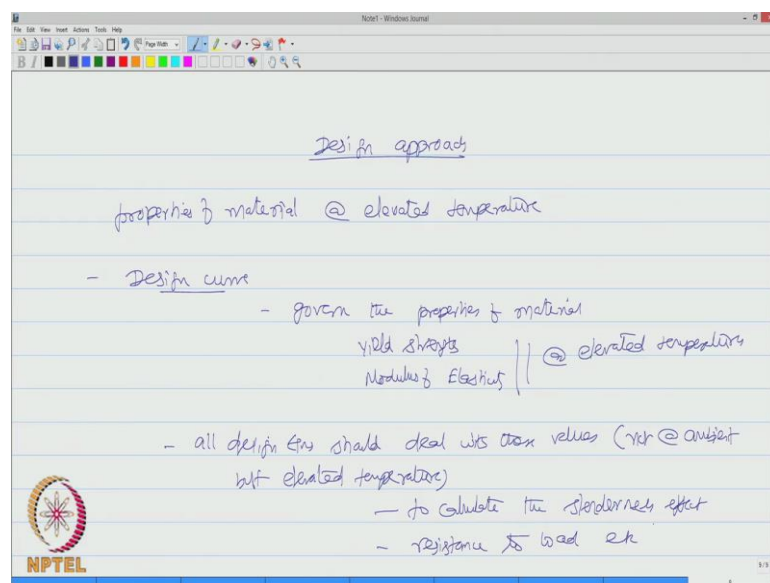 Note1 - Windows Journal
File Edit View Insert Actions Tools Help
Page Width
B I
Design approach
properties of material @ elevated temperature
- Design curve
- govern the properties of material
yield strength
Modulus of Elasticity
@ elevated temperature
- all design eqns should deal with these values (not @ ambient
but elevated temperature)
- to calculate the slenderness effect
- resistance to load etc
NPTEL
9/9